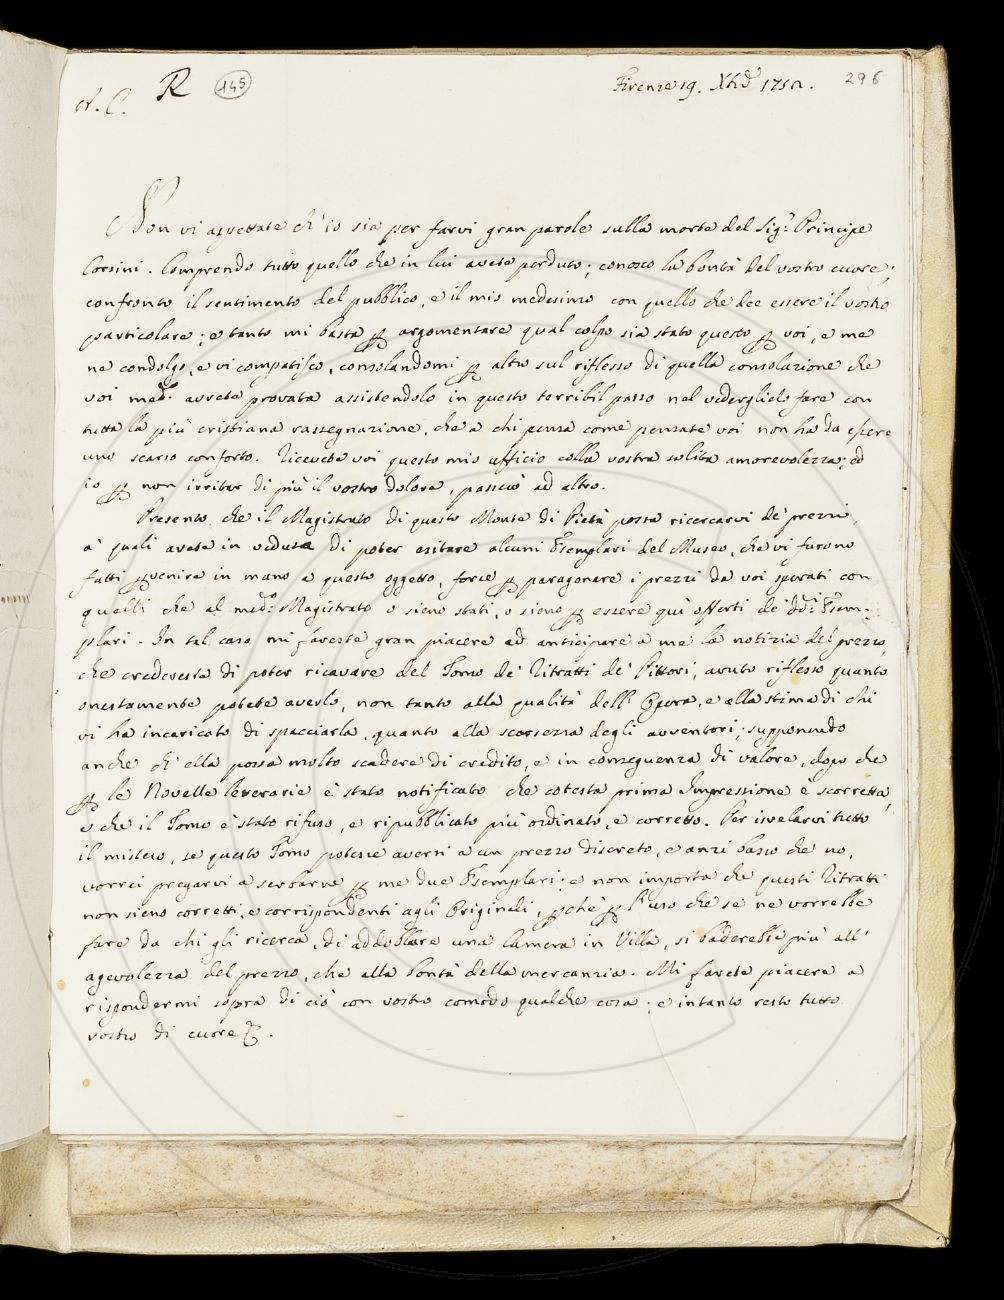 A. C. R 145 Firenze 19. Xbre 1752. 296
Non vi aspettate ch' io sia per farvi gran parole sulla morte del Sig.r Principe
Corsini. Comprendo tutto quello che in lui avete perduto; conosco la bontà del vostro cuore;
confronto il sentimento del pubblico, e il mio medesimo con quello che dee essere il vostro
particolare; e tanto mi basta p argomentare qual colpo sia stato questo p voi, e me
ne condolgo, e vi compatisco, consolandomi p altro sul riflesso di quella consolazione che
voi med.o avrete provata assistendolo in questo terribil passo nel vederglielo fare con
tutta la più cristiana rassegnazione, che a chi pensa come pensate voi non ha da essere
uno scarso conforto. Ricevete voi questo mio ufficio colla vostra solita amorevolezza; ed
io p non irritar di più il vostro dolore, passerò ad altro.
Presento che il Magistrato di questo Monte di Pietà possa ricercarvi de' prezzi,
a' quali avete in veduta di poter esitare alcuni Esemplari del Museo, che vi furono
fatti pvenire in mano a questo oggetto, forse p paragonare i prezzi da voi sperati con
quelli che al med.o Magistrato o sieno stati, o sieno p essere quì offerti de' dd.i Esem-
plari. In tal caso mi fareste gran piacere ad anticipare a me la notizia del prezzo,
che credereste di poter ricavare del Tomo de' Ritratti de' Pittori, avuto riflesso quanto
onestamente potete averlo, non tanto alla qualità dell' Opera, e alla stima di chi
vi ha incaricato di spacciarla, quanto alla scarsezza degli avventori; supponendo
anche ch' ella possa molto scadere di credito, e in conseguenza di valore, dopo che
p le Novelle letterarie è stato notificato che cotesta prima Impressione è scorretta,
e che il Tomo è stato rifuso, e ripubblicato più ordinato, e corretto. Per isvelarvi tutto
il mistero, se questo Tomo potesse aversi a un prezzo discreto, e anzi basso che no,
vorrei pregarvi a serbarne p me due Esemplari; e non importa che questi Ritratti
non sieno corretti, e corrispondenti agli Originali, pchè p l' uso che se ne vorrebbe
fare da chi gli ricerca, di addobbare una Camera in Villa, si baderebbe più all'
agevolezza del prezzo, che alla bontà della mercanzia. Mi farete piacere a
rispondermi sopra di ciò con vostro comodo qualche cosa; e intanto resto tutto
vostro di cuore